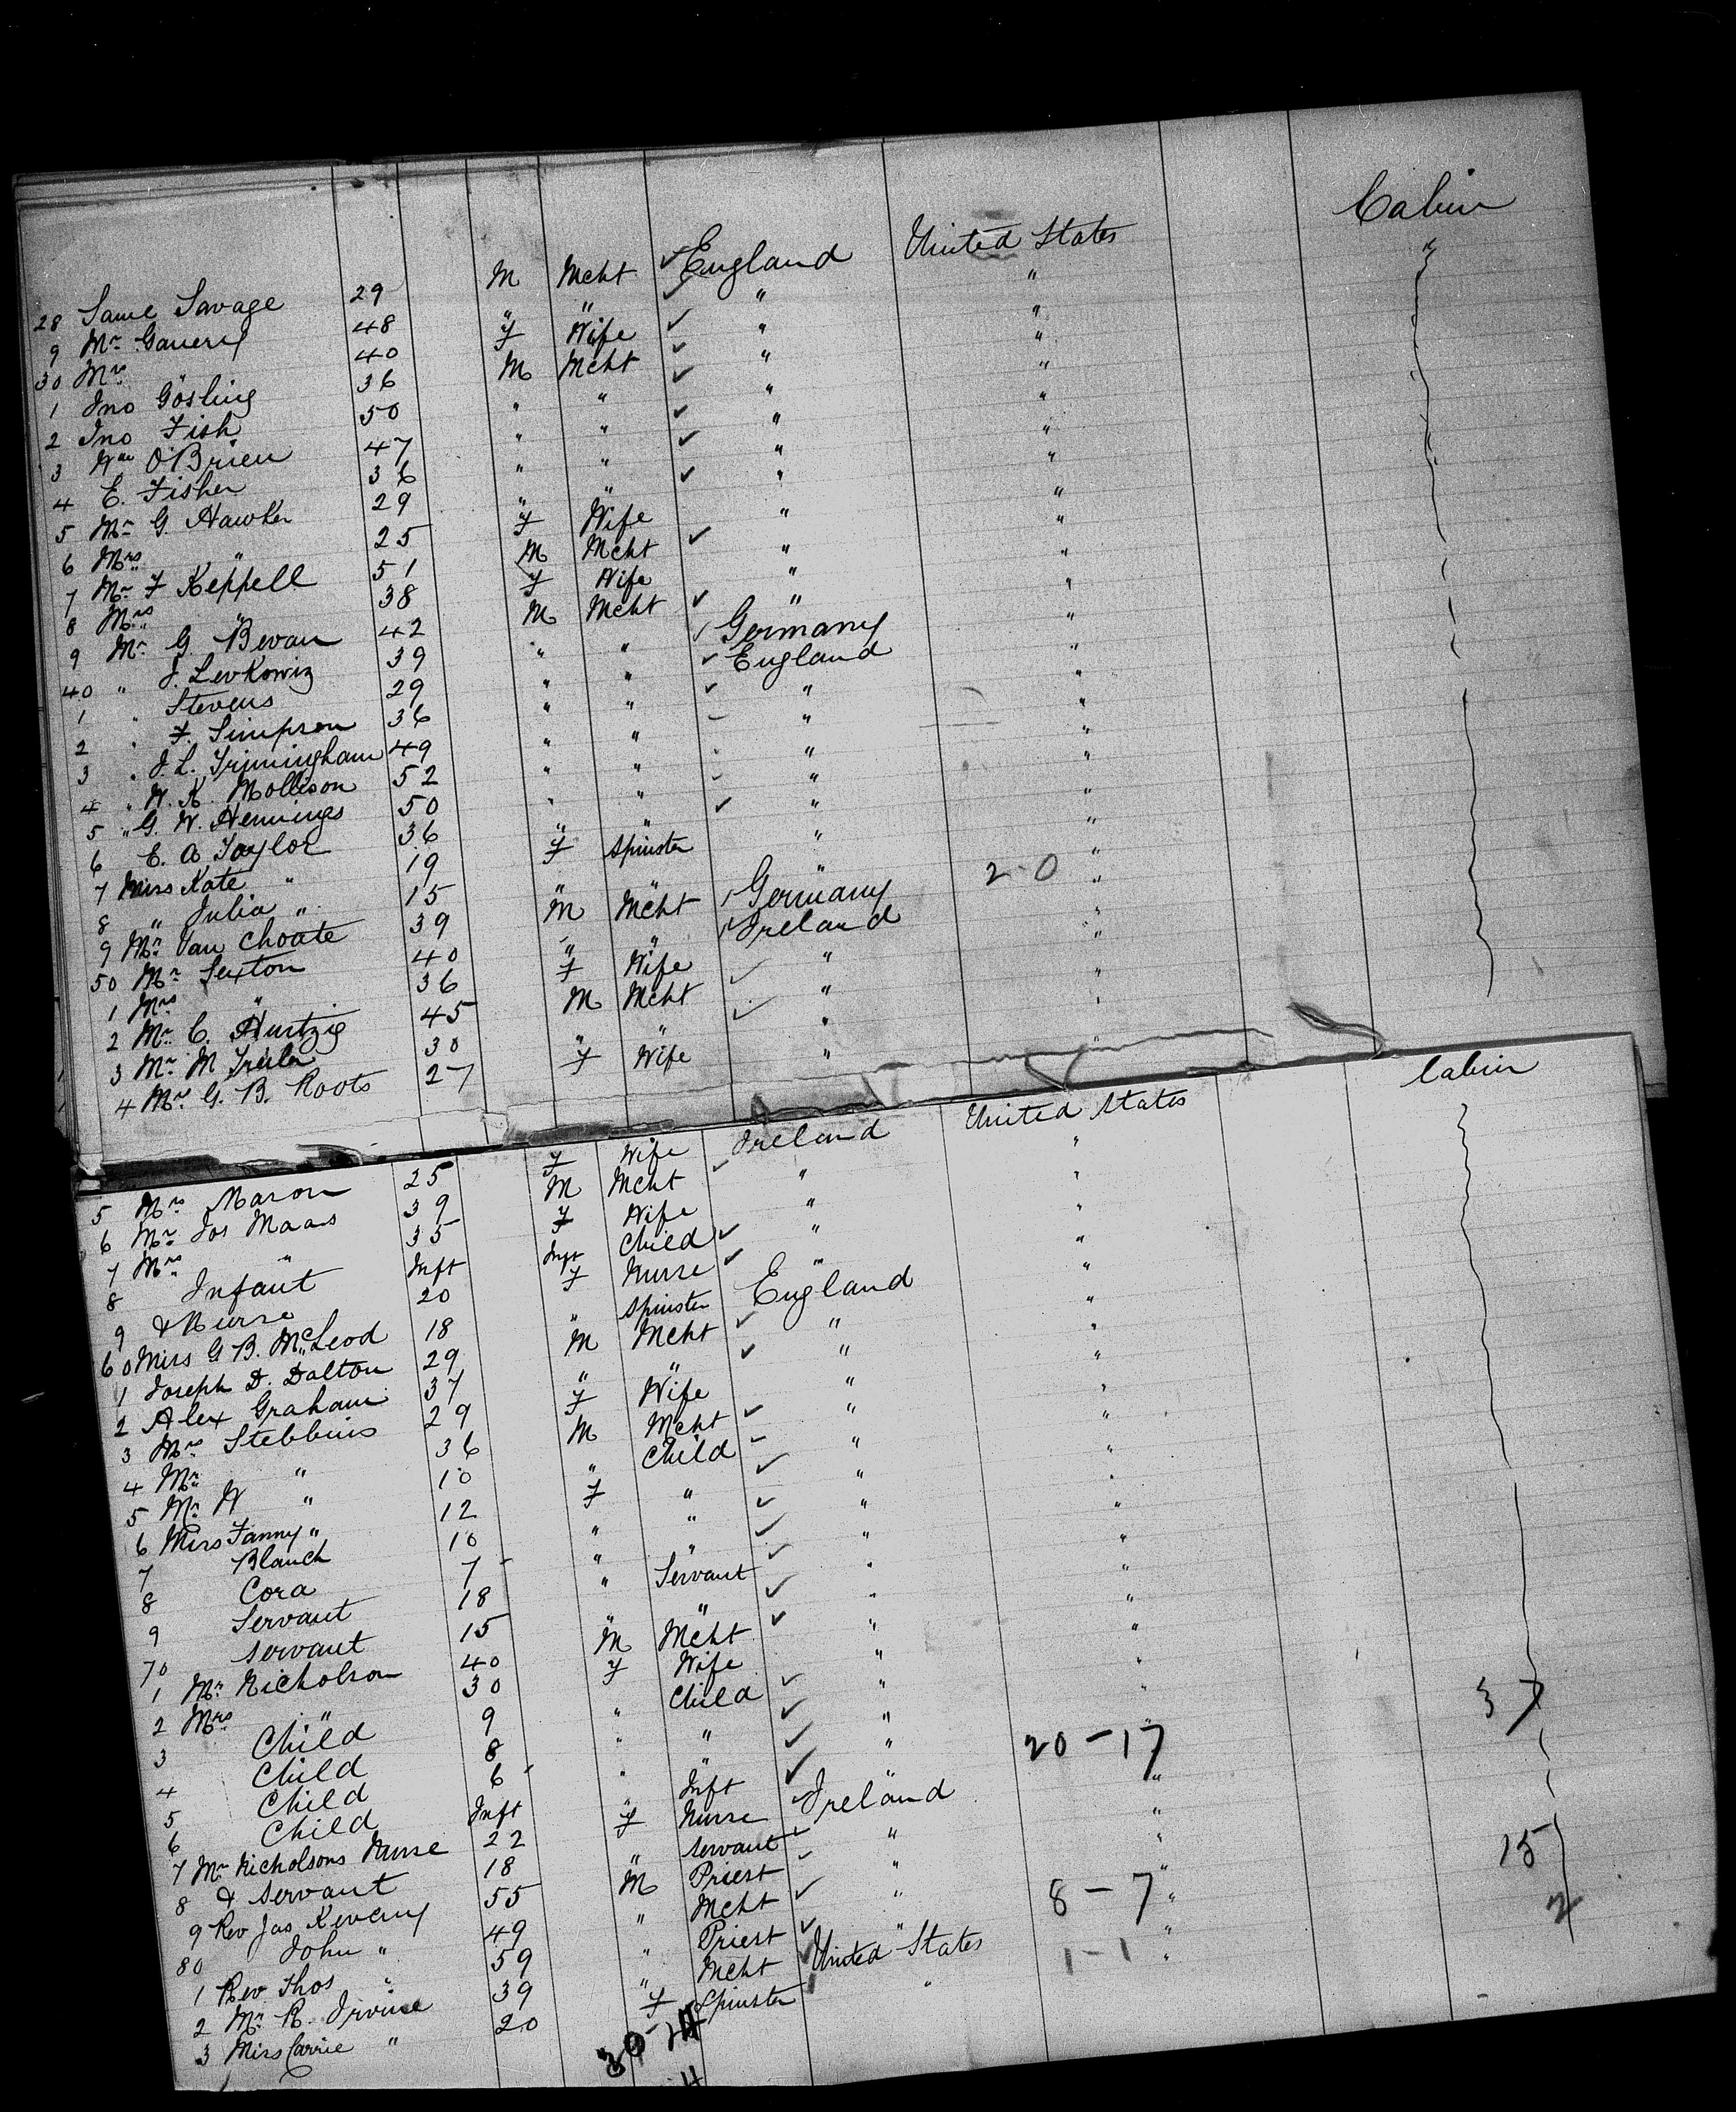 Cabin
28 Saml Savage 29 M Mcht England United States
9 Mr Gauery 48 " " " "
30 Mrs " 40 F Wife " "
1 Jno Gosling 36 M Mcht " "
2 Jno Fish 50 " " " "
3 Wm O'Brien 47 " " " "
4 E. Fisher 36 " " " "
5 Mr G. Hawker 29 " " " "
6 Mrs " 25 F Wife " "
7 Mr F Keppell 51 M Mcht " "
8 Mrs " 38 F Wife " "
9 Mr G. Bevan 42 M Mcht " "
40 " J. Levkowiz 39 " " Germany "
1 " Stevens 29 " " England "
2 " F. Simpson 36 " " " "
3 " J. L. Trimingham 49 " " " "
4 " W. K. Mollison 52 " " " "
5 " G. W. Hennings 50 " " " "
6 E. A Taylor 36 " " " "
7 Miss Kate " 19 F Spinster " "
8 " Julia " 15 " " " " 2-0
9 Mr Van Choate 39 M Mcht Germany "
50 Mr Sexton 40 " " Ireland "
1 Mrs " 36 F Wife " "
2 Mr C. Hurtzig 45 M Mcht " "
3 Mr M 30 " " " "
4 Mrs G. B. Roots 27 F Wife " "
Cabin
5 Mrs Mason 25 F Wife Ireland United States
6 Mr Jos Maas 39 M Mcht " "
7 Mrs " 35 F Wife " "
8 Infant Inft Inft Child " "
9 & Nurse 20 F Nurse " "
60 Miss G B. McLeod 18 " Spinster England "
1 Joseph D. Dalton 29 M Mcht " "
2 Alex Graham 37 " " " "
3 Mrs Stebbins 29 F Wife " "
4 Mr " 36 M Mcht " "
5 Mr W " 10 " Child " "
6 Miss Fanny " 12 F " " "
7 Blanch 10 " " " "
8 Cora 7 " " " "
9 Servant 18 " Servant " "
70 servant 15 " " " "
1 Mr Nicholson 40 M Mcht " "
2 Mrs " 30 F Wife " "
3 Child 9 " Child " "
4 Child 8 " " " " 37
5 Child 6 " " " 20-17
6 Child Inft " Inft " "
7 Mr Nicholsons Nurse 22 F Nurse Ireland "
8 & servant 18 " servant " "
9 Rev Jas Keveny 55 M Priest " " 15
80 John " 49 " Mcht " 8-7 "
1 Rev Thos " 59 " Priest " " 2
2 Mr R. Irvine 39 " Mcht United States 1-1 "
3 Miss Carrie " 20 F Spinster "